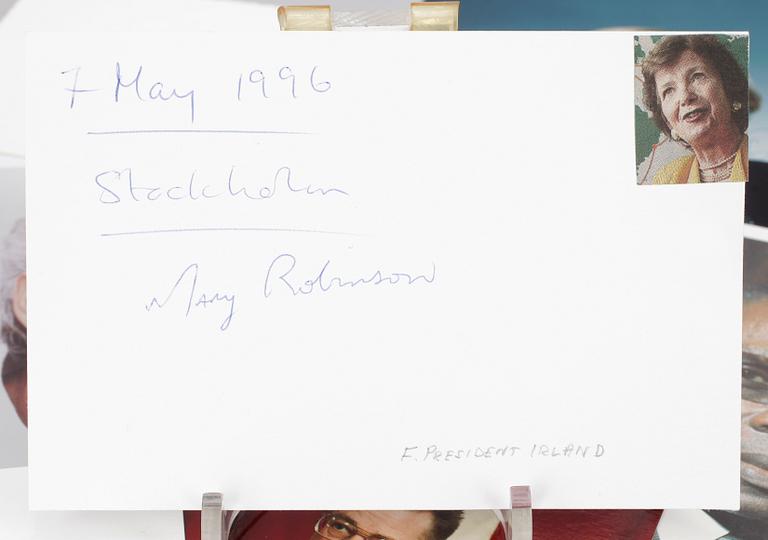 7 May 1996
Stockholm
Mary Robinson
F. PRESIDENT IRLAND